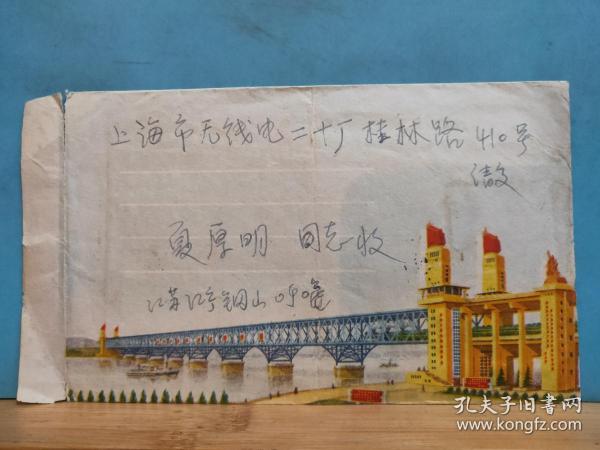 上海市无线电二十厂桂林路410号
请交
夏厚明 同志收
江苏江宁铜山
孔夫子旧书网
www.kongfz.com